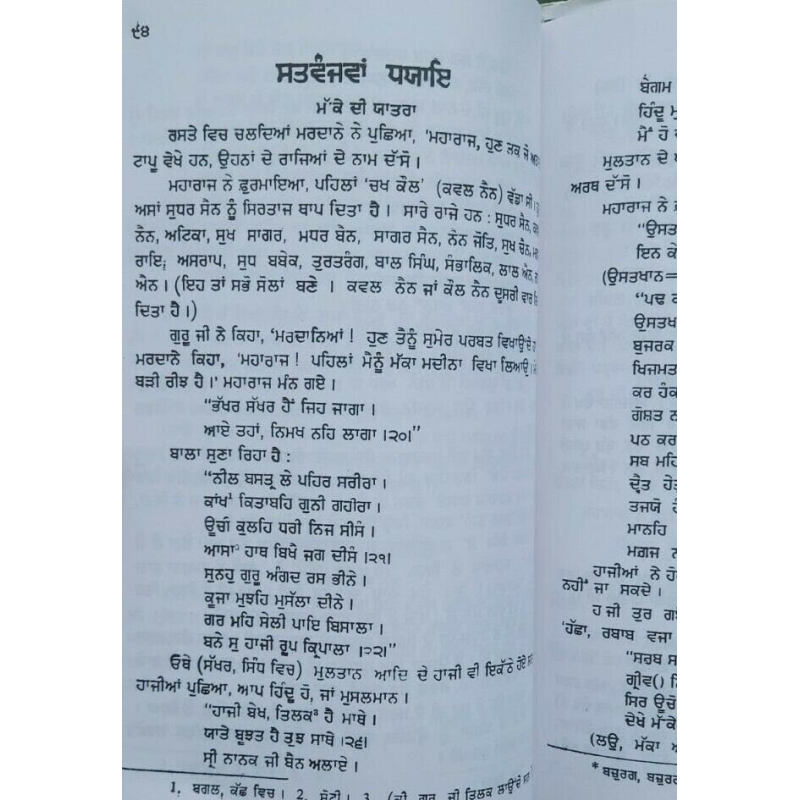 ੯੪
ਸਤਵੰਜਵਾਂ ਧਯਾਇ
ਮੱਕੇ ਦੀ ਯਾਤਰਾ
ਰਸਤੇ ਵਿਚ ਚਲਦਿਆਂ ਮਰਦਾਨੇ ਨੇ ਪੁਛਿਆ, 'ਮਹਾਰਾਜ, ਹੁਣ ਤਕ ਜੋ
ਟਾਪੂ ਵੇਖੇ ਹਨ, ਉਹਨਾਂ ਦੇ ਰਾਜਿਆਂ ਦੇ ਨਾਮ ਦੱਸੋ ।
ਮਹਾਰਾਜ ਨੇ ਫ਼ੁਰਮਾਇਆ, ਪਹਿਲਾਂ 'ਚਖ ਕੌਲ' (ਕਵਲ ਨੈਨ) ਵੱਡਾ ਸੀ ।
ਅਸਾਂ ਸੁਧਰ ਸੈਨ ਨੂੰ ਸਿਰਤਾਜ ਥਾਪ ਦਿਤਾ ਹੈ । ਸਾਰੇ ਰਾਜੇ ਹਨ : ਸੁਧਰ ਸੈਨ,
ਨੈਨ, ਅਟਿਕਾ, ਸੁਖ ਸਾਗਰ, ਮਧਰ ਬੇਨ, ਸਾਗਰ ਸੈਨ, ਨੇਨ ਜੋਤਿ, ਸੁਖ ਚੈਨ,
ਰਾਇ, ਅਸਰਾਪ, ਸੁਧ ਬਬੇਕ, ਤੁਰਤਰੰਗ, ਬਾਲ ਸਿੰਘ, ਸੰਭਾਲਿਕ, ਲਾਲ ਐਨ,
ਐਨ । (ਇਹ ਤਾਂ ਸਭੇ ਸੋਲਾਂ ਬਣੇ । ਕਵਲ ਨੈਨ ਜਾਂ ਕੌਲ ਨੈਨ ਦੂਸਰੀ ਵਾਰ
ਦਿਤਾ ਹੈ ।)
ਗੁਰੂ ਜੀ ਨੇ ਕਿਹਾ, 'ਮਰਦਾਨਿਆਂ ! ਹੁਣ ਤੈਨੂੰ ਸੁਮੇਰ ਪਰਬਤ ਵਿਖਾਉਂਦੇ
ਮਰਦਾਨੇ ਕਿਹਾ, 'ਮਹਾਰਾਜ ! ਪਹਿਲਾਂ ਮੈਨੂੰ ਮੱਕਾ ਮਦੀਨਾ ਵਿਖਾ ਲਿਆਉ ।
ਬੜੀ ਰੀਝ ਹੈ ।' ਮਹਾਰਾਜ ਮੰਨ ਗਏ ।
"ਭੱਖਰ ਸੱਖਰ ਹੈਂ ਜਿਹ ਜਾਗਾ ।
ਆਏ ਤਹਾਂ, ਨਿਮਖ ਨਹਿ ਲਾਗਾ ।੨੦।"
ਬਾਲਾ ਸੁਣਾ ਰਿਹਾ ਹੈ :
"ਨੀਲ ਬਸਤ੍ਰ ਲੇ ਪਹਿਰ ਸਰੀਰਾ ।
ਕਾਂਖ¹ ਕਿਤਾਬਹਿ ਗੁਨੀ ਗਹੀਰਾ ।
ਊਚੀ ਕੁਲਹਿ ਧਰੀ ਨਿਜ ਸੀਸੰ ।
ਆਸਾ² ਹਾਥ ਬਿਖੈ ਜਗ ਦੀਸੰ ।੨੧।
ਸੁਨਹੁ ਗੁਰੂ ਅੰਗਦ ਰਸ ਭੀਨੇ ।
ਕੂਜਾ ਮੁਝਹਿ ਮੁਸੱਲਾ ਦੀਨੇ ।
ਗਰ ਮਹਿ ਸੇਲੀ ਪਾਇ ਬਿਸਾਲਾ ।
ਬਨੇ ਸੁ ਹਾਜੀ ਰੂਪ ਕ੍ਰਿਪਾਲਾ ।੨੨।"
ਓਥੇ (ਸੱਖਰ, ਸਿੰਧ ਵਿਚ) ਮੁਲਤਾਨ ਆਦਿ ਦੇ ਹਾਜੀ ਵੀ ਇਕੱਠੇ ਹੋਏ
ਹਾਜੀਆਂ ਪੁਛਿਆ, ਆਪ ਹਿੰਦੂ ਹੋ, ਜਾਂ ਮੁਸਲਮਾਨ ।
"ਹਾਜੀ ਬੇਖ, ਤਿਲਕ³ ਹੈ ਮਾਥੇ ।
ਯਾਤੇ ਬੂਝਤ ਹੈ ਤੁਝ ਸਾਥੇ ।੨੬।
ਸ੍ਰੀ ਨਾਨਕ ਜੀ ਬੈਨ ਅਲਾਏ ।
1. ਬਗਲ, ਕੱਛ ਵਿਚ । 2. ਸੋਟੀ । 3. ਗੁਰੂ ਜੀ ਤਿਲਕ ਲਾਉਂਦੇ
ਬੇਗਮ
ਹਿੰਦੂ
ਮੈਂ ਹੋ
ਮੁਲਤਾਨ ਦੇ
ਅਰਥ ਦੱਸੋ ।
ਮਹਾਰਾਜ ਨੇ
"ਉਸਤ
ਇਨ ਕੇ
(ਉਸਤਖਾਨ=
"ਪਢ
ਉਸਤਖ
ਬੁਜਰਕ
ਖਿਜਮਤ
ਕਰ ਹੰਕ
ਗੋਸ਼ਤ ਨ
ਪਠ ਕਰ
ਸਬ ਮਹਿ
ਦ੍ਵੈਤ ਹੇਤ
ਤਜਯੋ
ਮਾਨਹਿ
ਮਗ਼ਜ
ਹਾਜੀਆਂ ਨੇ
ਨਹੀਂ ਜਾ ਸਕਦੇ ।
ਹਜੀ ਤੁਰ
'ਹੱਛਾ, ਰਬਾਬ ਵਜਾ
"ਸਰਬ
ਗ੍ਰੀਵ()
ਸਿਰ ਉਚੋ
ਦੇਖੇ ਮੱਕੇ
(ਲਉ, ਮੱਕਾ
* ਬਜ਼ੁਰਗ,